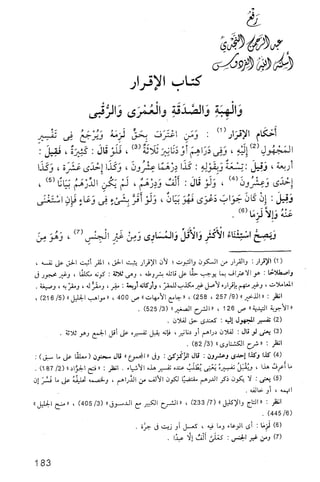 رفع
عبد الرحمن النجدي
أسكنه الله الفردوس
كتاب الإقرار
والهبة والصدقة والعمرى والرقبى
أحكام الإقرار (١) : ومن اعترف بحق لزمه ويرجع في تفسير
المجهول (٢) إليه ، وفي دراهم أو دنانير ثلاثة (٣) ، فلو قال : كثيرة ، فقيل :
أربعة ، وقيل : تسعة وبقوله : كذا درهما عشرون ، وكذا إحدى عشرة ، وكذا
إحدى وعشرون (٤) ، ولو قال : ألف ودرهم ، لم يكن الدرهم بيانا (٥) ،
وقيل : إن كان جواب دعوى فهو بيان ، ولو أقر بشيء في وعاء فإن استغنى
عنه وإلا لزما (٦) .
ويصح استثناء الأكثر والأقل والمساوي ومن غير الجنس (٧) ، وهو من
(١) الإقرار : والقرار من السكون والثبوت ؛ لأن الإقرار يثبت الحق ، المقر أثبت الحق على نفسه ،
واصطلاحا : هو الاعتراف بما يوجب حقا على قائله بشروطه ، وهي ثلاثة : كونه مكلفا ، وغير محجور في
المعاملات ، وغير متهم بإقراره لأصل غير مكذب للمقر ، وأركانه أربعة : مقر ، ومقر له ، ومقر به ، وصيغة .
انظر : «الذخير» (٩/ 257 ، 258) ، «جامع الأمهات» ص 400 ، «مواهب الجليل» (5/216) ،
«الأجوبة الثنية» ص 126 ، «الشرح الصغير» (3/ 525) .
(٢) تفسير المجهول إليه : كعندي حق لفلان .
(٣) يعني لو قال : لفلان دراهم أو دنانير ، فإنه يقبل تفسيره على أقل الجمع وهو ثلاثة .
انظر : «شرح الكشناوي» (3/ 82) .
(٤) كذا وكذا إحدى وعشرون : قال الزركزن : وفي «المجموع» قال سحنون (معلقا على ما سبق) :
ما أعرف هذا ، ويقبل تفسيره يعني يطلب عنده تفسير هذه الأشياء . انظر : «فتح الجواد» (2/ 187) .
(٥) يعني : لا يكون ذكر الدرهم مقتضيا لكون الألف من الدراهم ، ولخصمه تحليفه على ما فسر إن
اتهمه ، أو خالفه .
انظر : «التاج والإكليل» (7/ 233) ، «الشرح الكبير مع الدسوقي» (3/ 405) ، «منح الجليل»
(6/ 445) .
(٦) لزما : أي الوعاء وما فيه ، كعسل أو زيت في جرة .
(٧) ومن غير الجنس : كعلى ألف إلا عبدا .
183